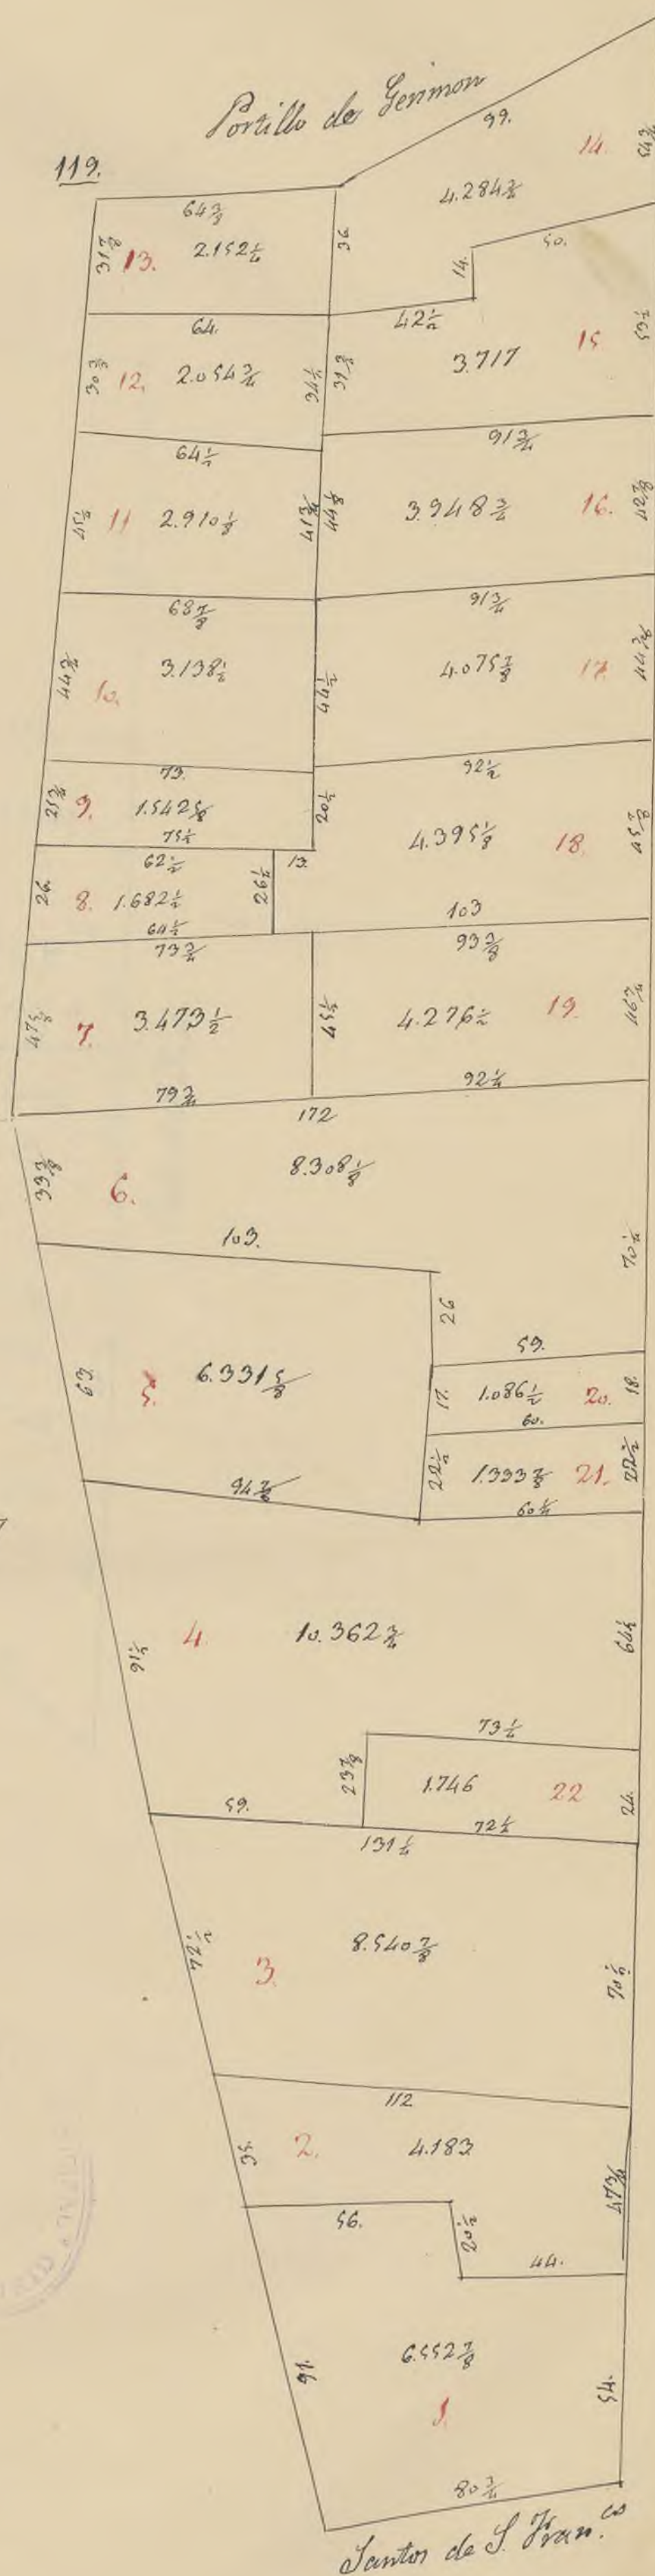 Portillo de Gerimon
119.
99.
14.
4.284 3/4
64 3/8
31 7/8
13.
2.152 1/4
36.
14.
50.
64.
42 1/2
15
30 3/8
12.
2.054 3/4
31 3/8
3.717
64 1/2
91 3/4
11
2.910 1/8
41 3/4
44 1/8
3.948 3/4
16.
42 7/8
68 7/8
91 3/4
44 3/4
10.
3.138 1/2
44 1/2
4.075 7/8
17.
44 3/8
73.
92 1/2
9.
1.542 5/8
20 1/2
75 1/2
4.395 1/8
18.
62 1/2
13.
26.
8.
1.682 1/2
26 1/2
103
64 1/2
73 3/4
93 3/8
47 5/8
7.
3.473 1/2
4.276 1/2
19.
79 3/4
92 1/4
172
33 3/8
6.
8.308 1/8
70 1/4
103.
26
59.
63.
5.
6.331 5/8
17.
1.086 1/2
20.
18.
60.
22 1/2
1.333 7/8
21.
22 1/2
94 7/8
60 1/4
4.
10.362 3/4
64 1/2
91 1/2
73 1/2
23 7/8
1.746
22
24.
59.
72 1/2
131 1/2
72 1/2
3.
8.540 7/8
70 1/2
112
35.
2.
4.183
47 3/4
56.
20 1/2
44.
91.
6.552 7/8
54.
1.
80 3/4
Santos de S. Fran.co